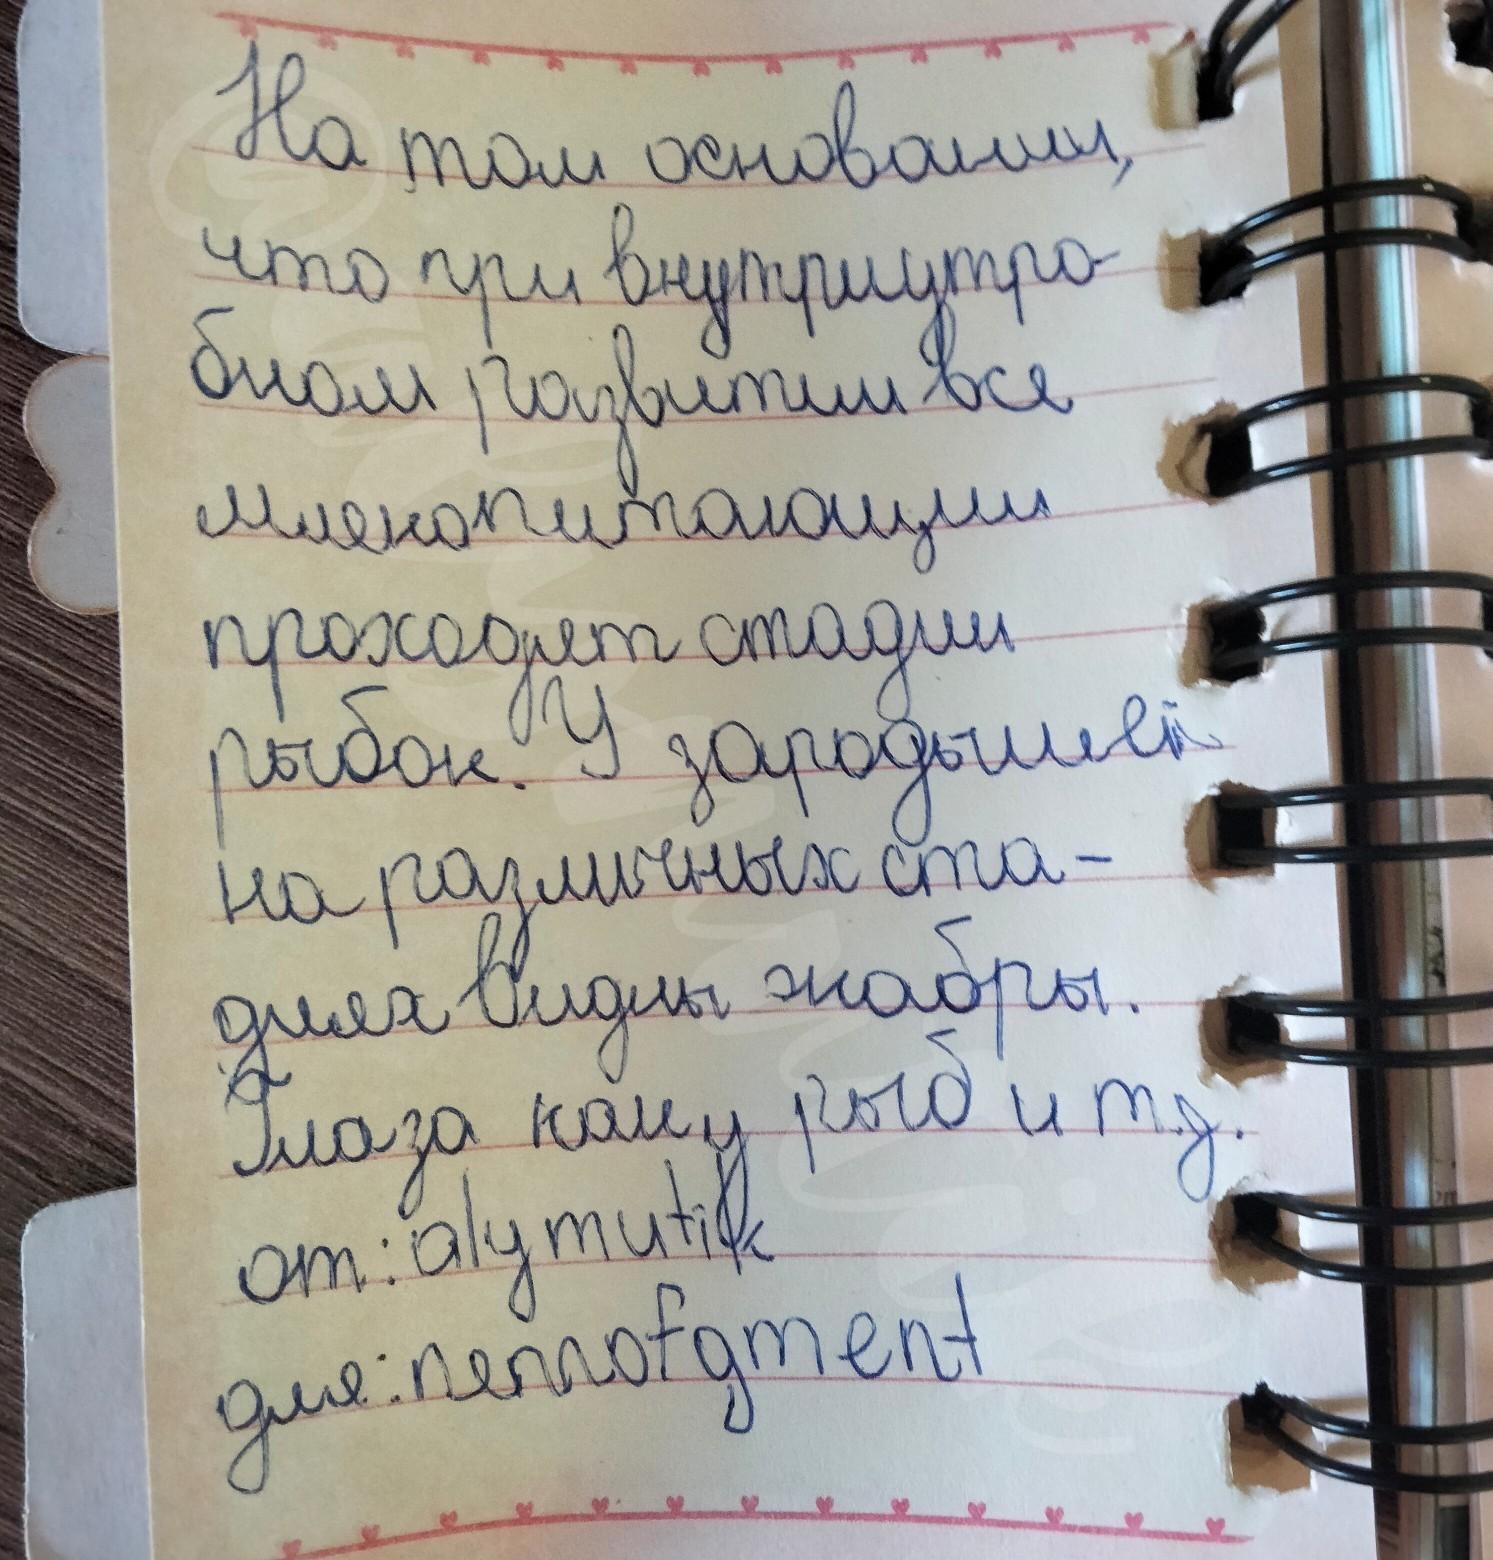 На том основании,
что при внутриутро-
бном развитии все
млекопитающии
проходят стадии
рыбок. У зародышей
на различных ста-
диях видны жабры.
Глаза как у рыб и т.д.
от: alymutik
для: nennofgment